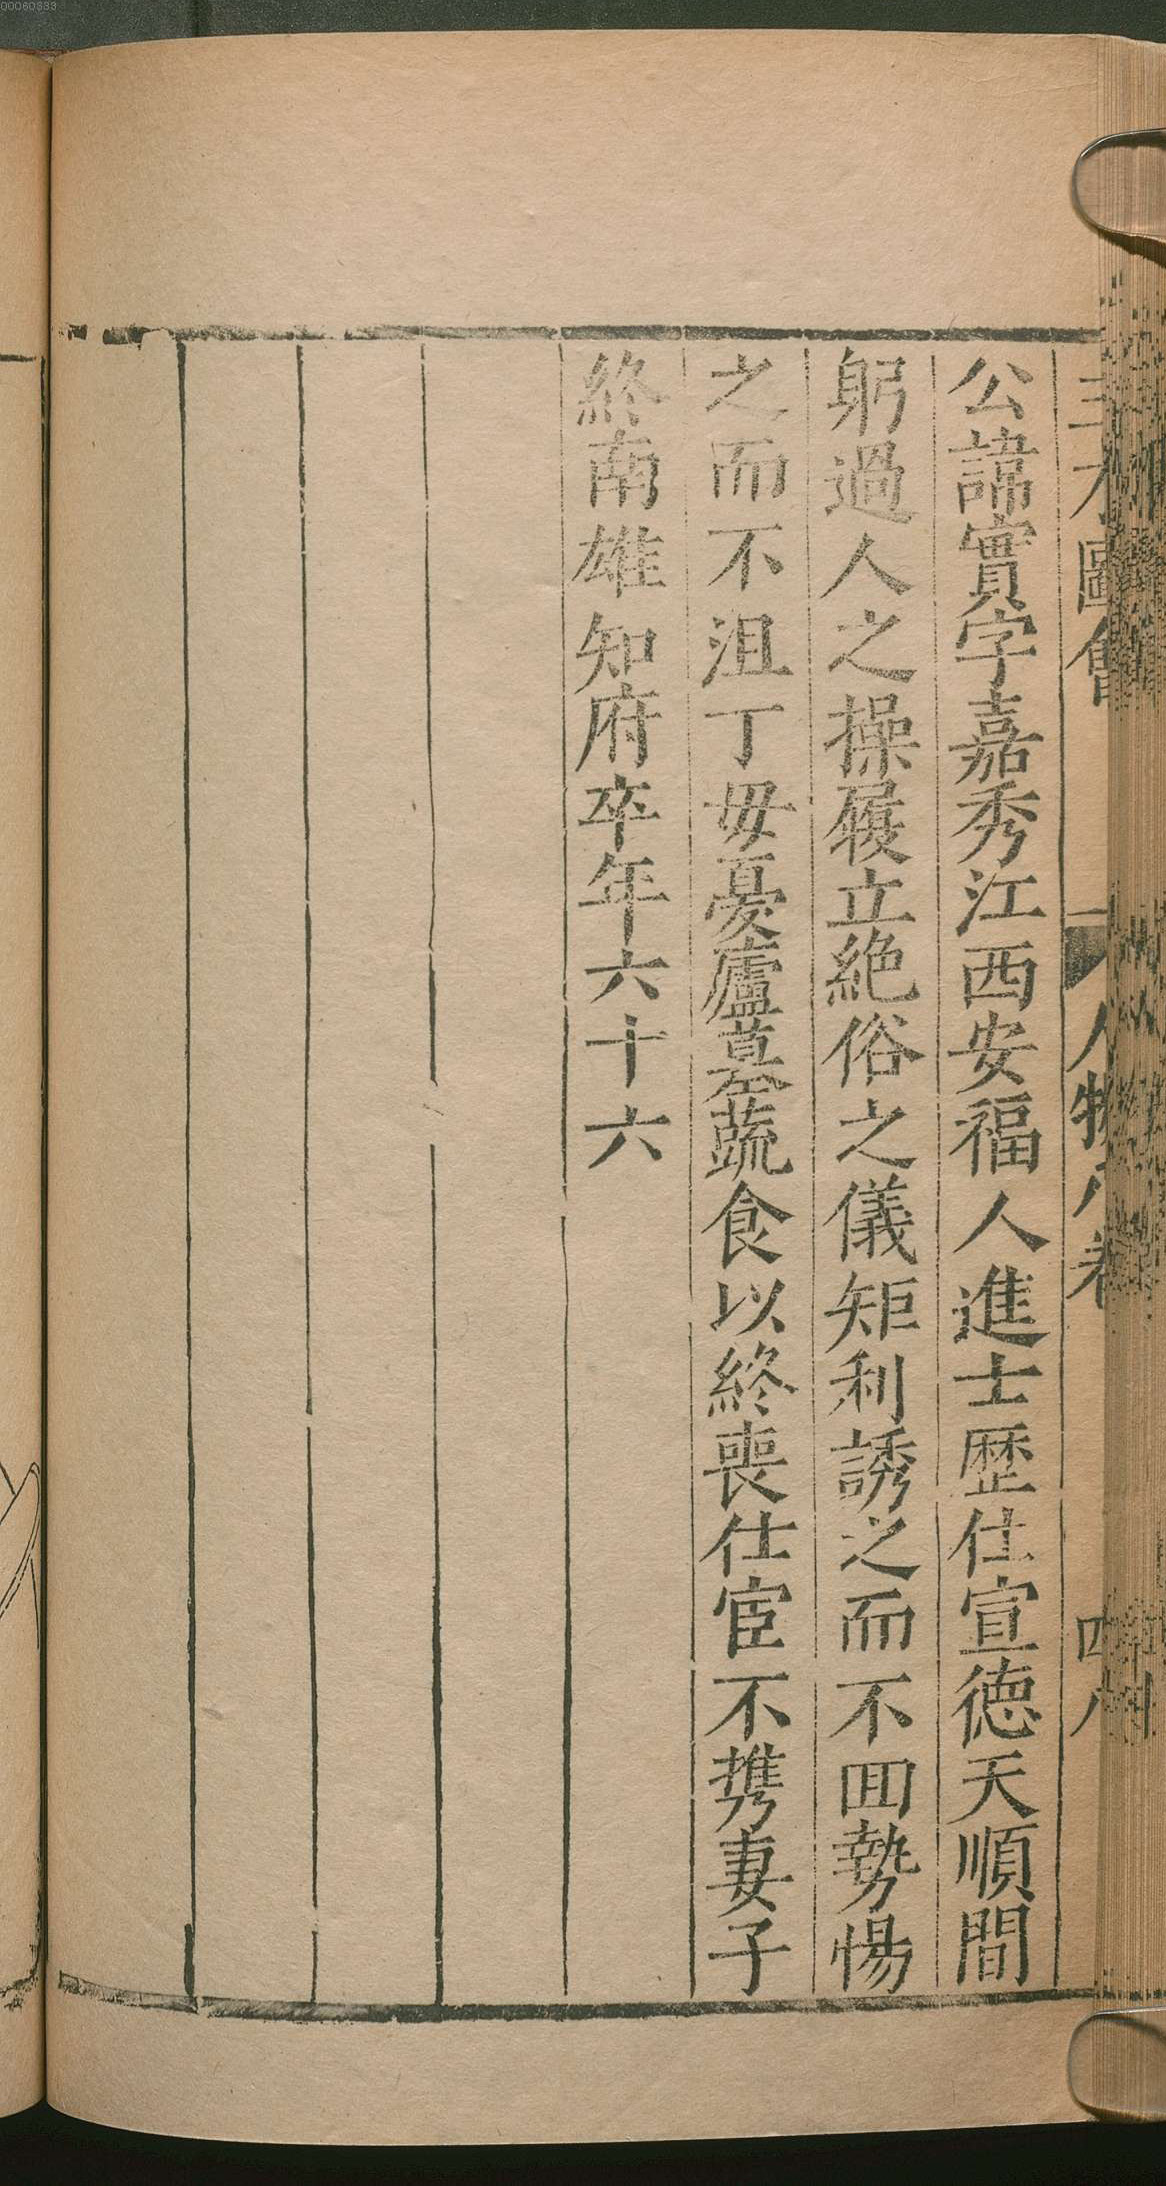 三才圖會 人物八卷 四八
公諱實字嘉秀江西安福人進士歷仕宣德天順間
躬過人之操履立絶俗之儀矩利誘之而不囬勢惕
之而不沮丁毋憂廬墓蔬食以終喪仕宦不携妻子
終南雄知府卒年六十六
00060333